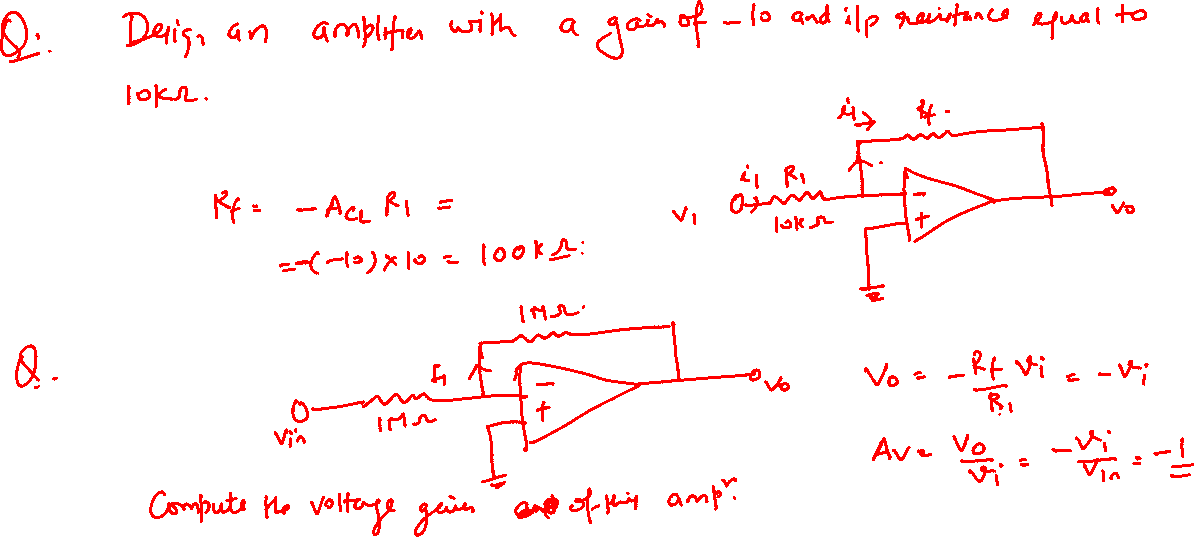 Q. Design an amplifier with a gain of -10 and i/p resistance equal to
10kΩ.
i1 Rf.
i1 R1
V1
10kΩ
-
+
Vo
Rf = - ACL R1 =
= -(-10) x 10 = 100kΩ.
Q.
1MΩ.
I1
Vin
1MΩ
-
+
Vo
Vo = - Rf/R1 Vi = - Vi
Av = Vo/Vi = -Vi/Vin = -1
Compute the voltage gain of this ampr.